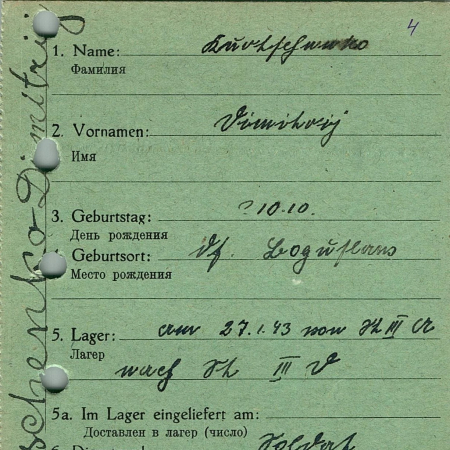 4
1. Name: Kurtschenko
Фамилия
2. Vornamen: Dimitrij
Имя
3. Geburtstag: ? 10.10.
День рождения
4. Geburtsort: df. Boguslaw
Место рождения
5. Lager: am 27.1.43 von St III A
Лагер
nach St III D
5a. Im Lager eingeliefert am:
Доставлен в лагер (число)
Soldat
schenko Dimitrij